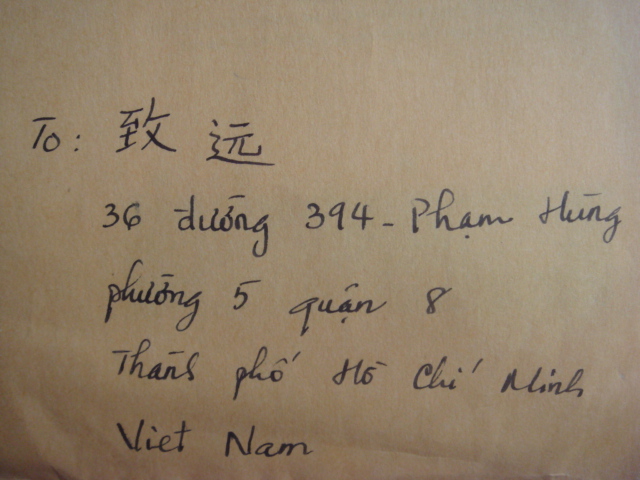 To: 致远
36 đường 394 - Phạm Hùng
phường 5 quận 8
Thành phố Hồ Chí Minh
Viet Nam